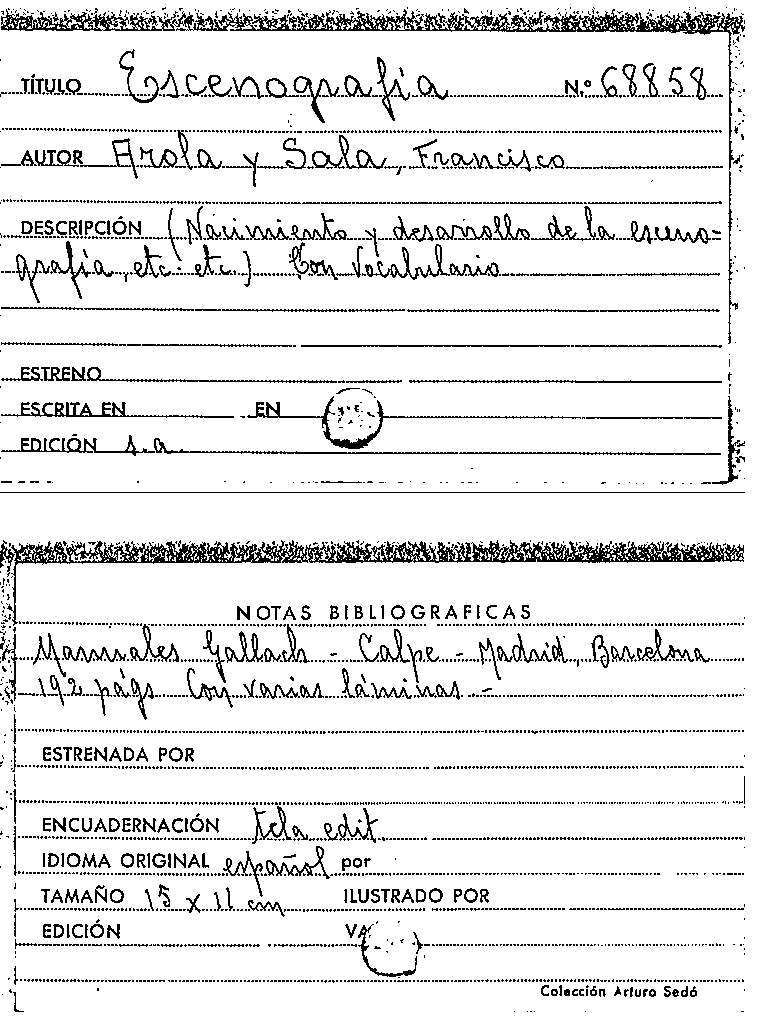 TÍTULO Escenografía N.º 68858
AUTOR Arola y Sala, Francisco
DESCRIPCIÓN (Nacimiento y desarrollo de la esceno-
grafía, etc. etc.) Con Vocabulario
ESTRENO
ESCRITA EN EN
EDICIÓN s.a.
NOTAS BIBLIOGRAFICAS
Manuales Gallach - Calpe - Madrid, Barcelona
192 págs Con varias láminas.-
ESTRENADA POR
ENCUADERNACIÓN tela edit.
IDIOMA ORIGINAL español por
TAMAÑO 15 x 11 cm ILUSTRADO POR
EDICIÓN
Colección Arturo Sedó